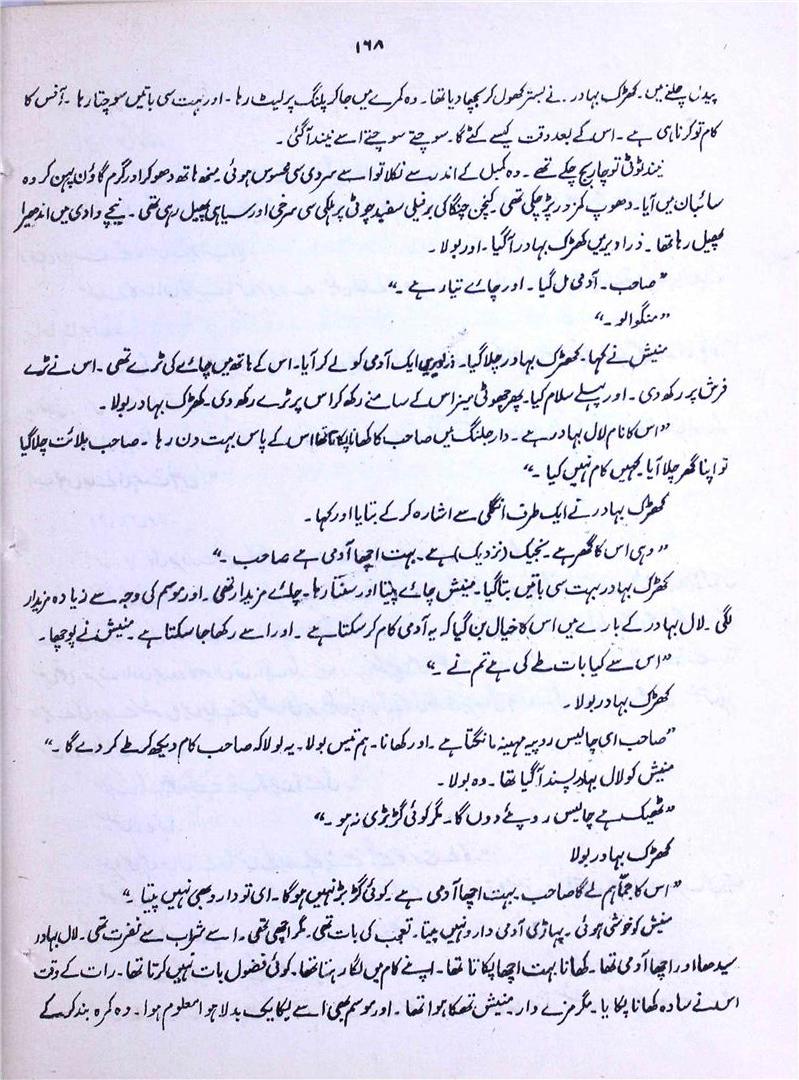 ۱۶۸
پیدل چلنے میں۔ کھڑک بہادر۔ نے بستر کھول کر بچھا دیا تھا۔ وہ کمرے میں جا کر پلنگ پر لیٹ رہا۔ اور بہت سی باتیں سوچتا رہا۔ آفس کا
کام تو کرنا ہی ہے۔ اس کے بعد وقت کیسے کٹے گا۔ سوچتے سوچتے اسے نیند آ گئی۔
نیند ٹوٹی تو چار بج چکے تھے۔ وہ کمبل کے اندر سے نکلا تو اسے سردی سی محسوس ہوئی۔ منھ ہاتھ دھو کر اور گرم گاؤن پہن کر وہ
سائبان میں آیا۔ دھوپ کمزور پڑ چکی تھی۔ کنچن چنگا کی برفیلی سفید چوٹی پر ہلکی سی سرخی اور سیاہی پھیل رہی تھی۔ نیچے وادی میں اندھیرا
پھیل رہا تھا۔ ذرا دیر میں کھڑک بہادر آ گیا۔ اور بولا۔
”صاحب۔ آدمی مل گیا۔ اور چائے تیار ہے۔“
”منگوا لو۔“
منیش نے کہا۔ کھڑک بہادر چلا گیا۔ ذرا دیر میں ایک آدمی کو لے کر آیا۔ اس کے ہاتھ میں چائے کی ٹرے تھی۔ اس نے ٹرے
فرش پر رکھ دی۔ اور پہلے سلام کیا۔ پھر چھوٹی میز اس کے سامنے رکھ کر اس پر ٹرے رکھ دی۔ کھڑک بہادر بولا۔
”اس کا نام لال بہادر ہے۔ دارجلنگ میں صاحب کا کھانا پکاتا تھا اس کے پاس بہت دن رہا۔ صاحب بلائت چلا گیا
تو اپنا گھر چلا آیا۔ کہیں کام نہیں کیا۔“
کھڑک بہادر نے ایک طرف انگلی سے اشارہ کر کے بتایا اور کہا۔
”وہی اس کا گھر ہے۔ نجیک (نزدیک) ہے۔ بہت اچھا آدمی ہے صاحب۔“
کھڑک بہادر بہت سی باتیں بتا گیا۔ منیش چائے پیتا اور سنتا رہا۔ چائے مزیدار تھی۔ اور موسم کی وجہ سے زیادہ مزیدار
لگی۔ لال بہادر کے بارے میں اس کا خیال بن گیا کہ یہ آدمی کام کر سکتا ہے۔ اور اسے رکھا جا سکتا ہے۔ منیش نے پوچھا۔
”اس سے کیا بات طے کی ہے تم نے۔“
کھڑک بہادر بولا۔
”صاحب ای چالیس روپیہ مہینہ مانگتا ہے۔ اور کھانا۔ ہم تیس بولا۔ یہ بولا کہ صاحب کام دیکھ کر طے کر دے گا۔“
منیش کو لال بہادر پسند آ گیا تھا۔ وہ بولا۔
”ٹھیک ہے چالیس روپئے دوں گا۔ مگر کوئی گڑبڑی نہ ہو۔“
کھڑک بہادر بولا
”اس کا جمّا ہم لے گا صاحب۔ بہت اچھا آدمی ہے۔ کوئی گڑبڑ نہیں ہو گا۔ ای تو دارو بھی نہیں پیتا۔“
منیش کو خوشی ہوئی۔ پہاڑی آدمی دارو نہیں پیتا۔ تعجب کی بات تھی۔ مگر اچھی تھی۔ اسے شراب سے نفرت تھی۔ لال بہادر
سیدھا اور اچھا آدمی تھا۔ کھانا بہت اچھا پکاتا تھا۔ اپنے کام میں لگا رہتا تھا۔ کوئی فضول بات نہیں کرتا تھا۔ رات کے وقت
اس نے سادہ کھانا پکایا۔ مگر مزے دار۔ منیش تھکا ہوا تھا۔ اور موسم بھی اسے یکایک بدلا ہوا معلوم ہوا۔ وہ کمرہ بند کر کے